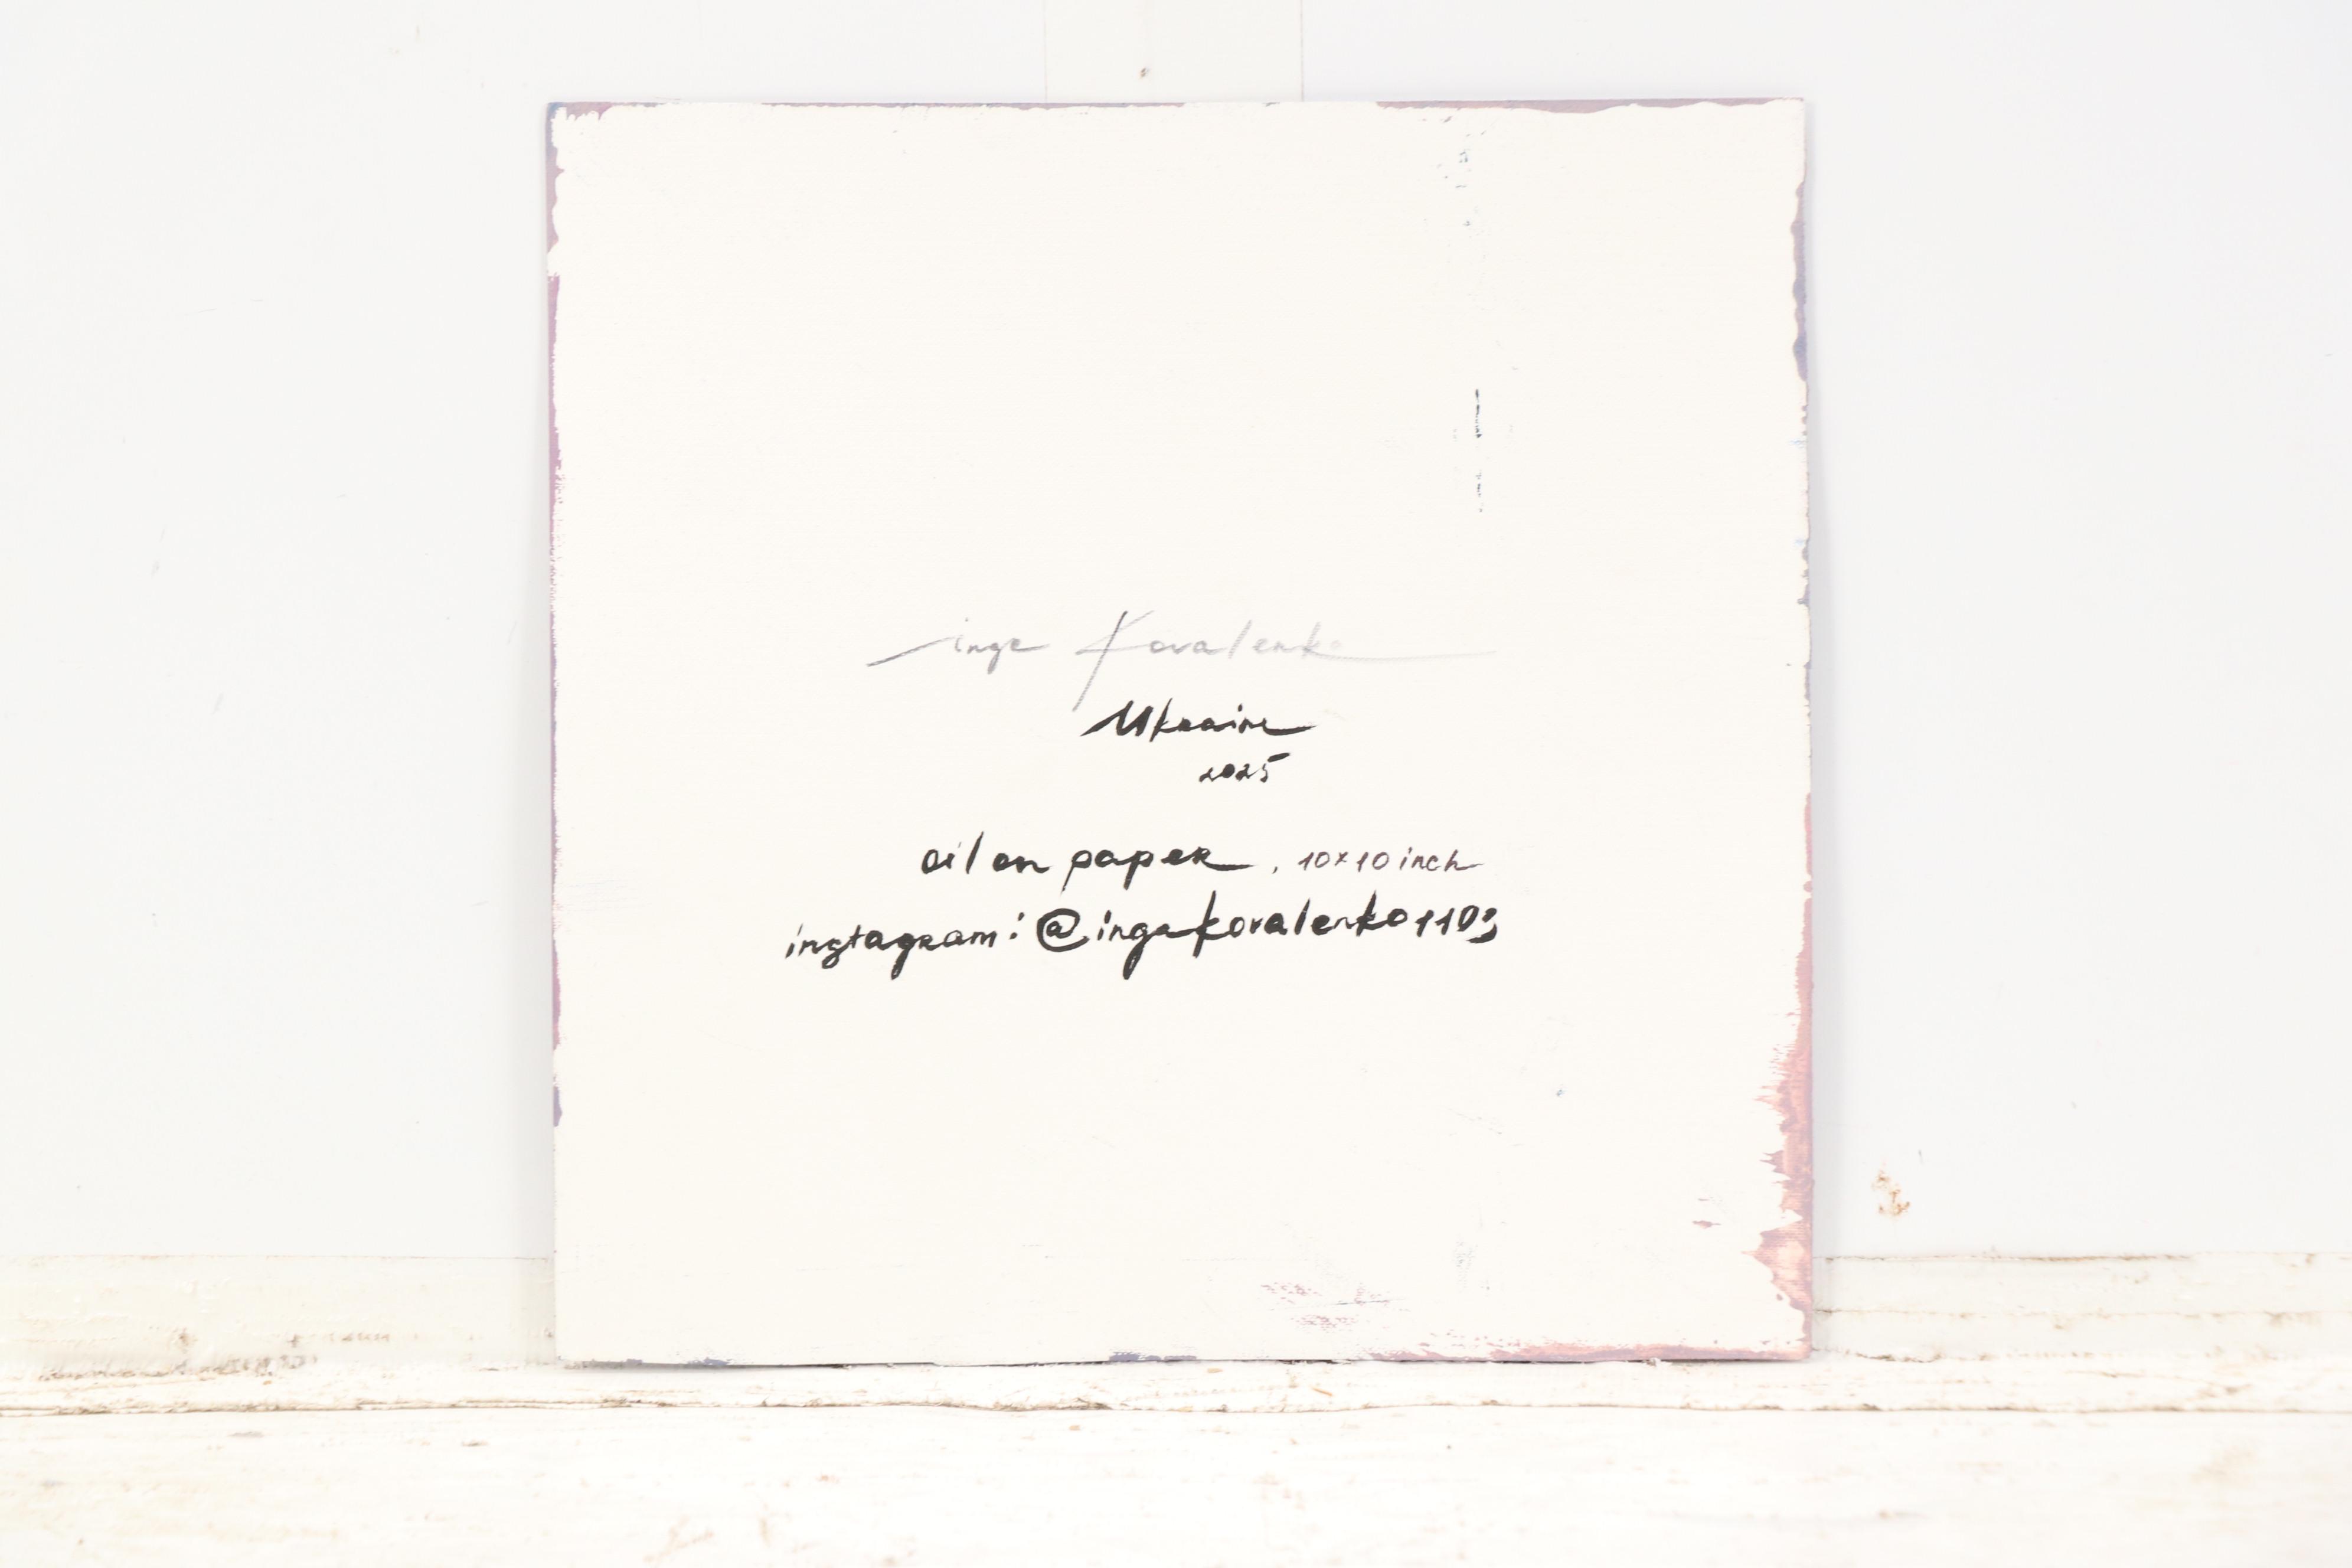 inga Kovalenko
Ukraine
2025
oil on paper, 10x10 inch
instagram: @ingakovalenko1103